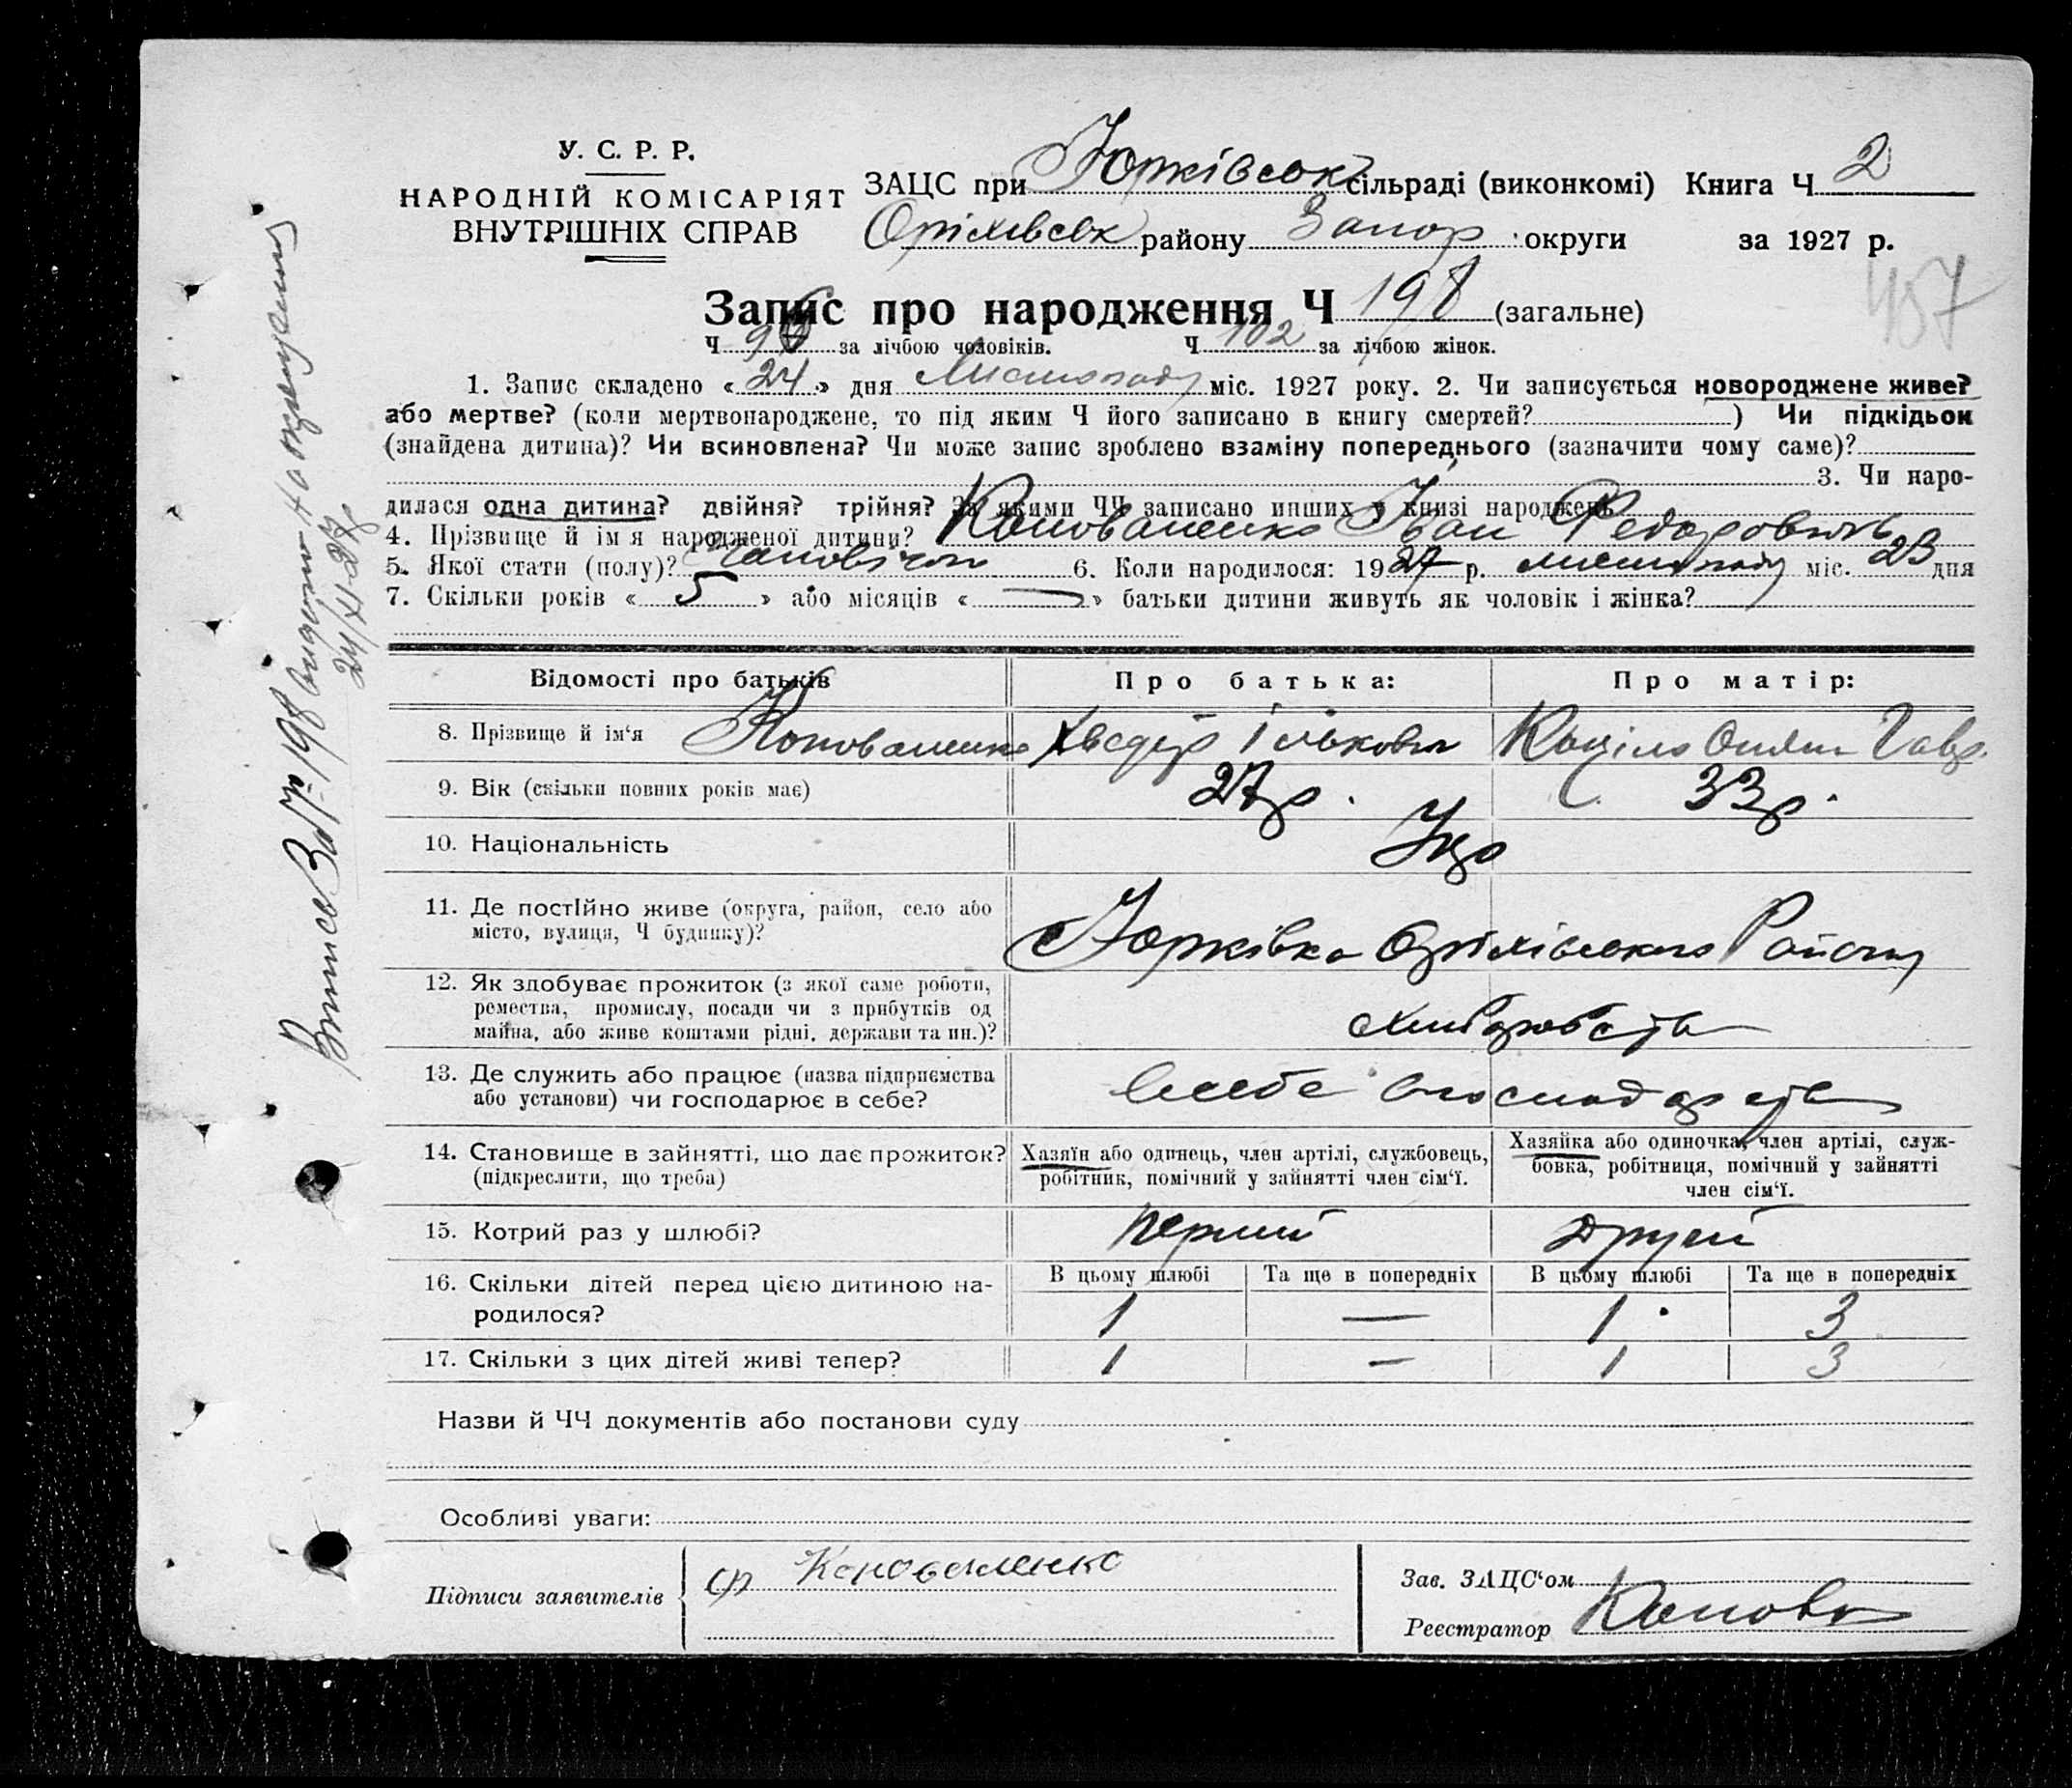 У. С. Р. Р.
НАРОДНІЙ КОМІСАРІЯТ
ВНУТРІШНІХ СПРАВ
ЗАЦС при Юрківськ сільраді (виконкомі) Книга Ч 2
Оріхівськ району Запор округи за 1927 р.
457
Запис про народження Ч 198 (загальне)
Ч 96 за лічбою чоловіків. Ч 102 за лічбою жінок.
1. Запис складено « 24 » дня Листопаду міс. 1927 року. 2. Чи записується новороджене живе?
або мертве? (коли мертвонароджене, то під яким Ч його записано в книгу смертей? ) Чи підкідьок
(знайдена дитина)? Чи всиновлена? Чи може запис зроблено взаміну попереднього (зазначити чому саме)?
3. Чи наро-
дилася одна дитина? двійня? трійня? За якими ЧЧ записано инших у книзі народжень
4. Прізвище й ім я народженої дитини? Коноваленко Іван Федорович
5. Якої стати (полу)? Чоловічої 6. Коли народилося: 1927 р. листопаду міс. 23 дня
7. Скільки років « 5 » або місяців « — » батьки дитини живуть як чоловік і жінка?
Відомості про батьків Про батька: Про матір:
8. Прізвище й ім'я Коноваленко Хведір Ількович
9. Вік (скільки повних років має) 27 р. 33 р.
10. Національність Укр
11. Де постІйно живе (округа, район, село або
місто, вулиця, Ч будинку)?
Юрківка Оріхівського Району
12. Як здобуває прожиток (з якої саме роботи,
ремества, промислу, посади чи з прибутків од
майна, або живе коштами рідні, держави та ин.)?
хліборобств
13. Де служить або працює (назва підприємства
або установи) чи господарює в себе?
14. Становище в зайнятті, що дає прожиток?
(підкреслити, що треба)
Хазяїн або одинець, член артілі, службовець,
робітник, помічний у зайнятті член сім'ї.
Хазяйка або одиночка, член артілі, служ-
бовка, робітниця, помічний у зайнятті
член сім'ї.
15. Котрий раз у шлюбі? перший другий
16. Скільки дітей перед цією дитиною на-
родилося?
В цьому шлюбі Та ще в попередніх В цьому шлюбі Та ще в попередніх
1 — 1 3
17. Скільки з цих дітей живі тепер? 1 — 1 3
Назви й ЧЧ документів або постанови суду
Особливі уваги:
Підписи заявителів Ф Коноваленко
Зав. ЗАЦС'ом
Реєстратор
24/XI-27р.